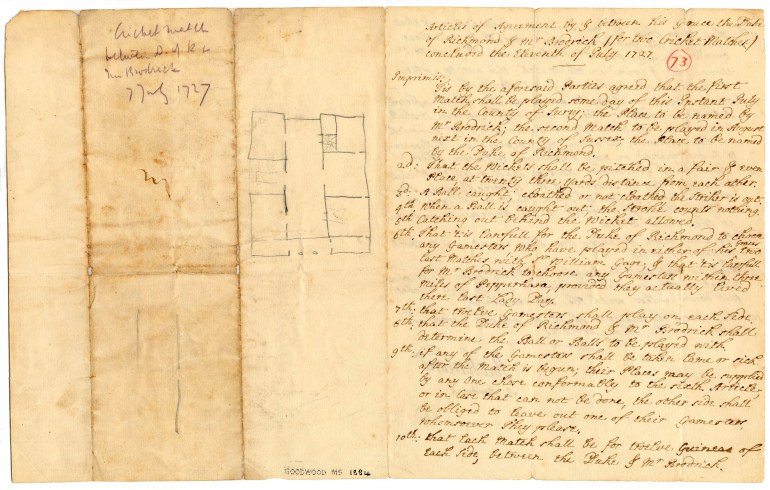 Cricket match
between D. of R. &
Mr Brodrick
July 1727
Articles of Agrament by & between His Grace the Duke
of Richmond & Mr Brodrick (for two Cricket Matches)
concluded the Eleventh of July 1727.
73
Imprimis,
'Tis by the aforesaid Parties agreed that the first
Match shall be played some day of this Instant July
in the County of Surry; the Place to be named by
Mr Brodrick; the second Match to be played in August
next in the County of Sussex, the Place to be named
by the Duke of Richmond.
2d: That the Wickets shall be pitched in a fair & even
Place, at twenty three yards distance from each other.
3d: A Ball caught, cloathed or not cloathed the Striker is out.
4th When a Ball is caught out, the Stroke counts nothing.
5th Catching out behind the Wicket allowed.
6th: That 'tis lawfull for the Duke of Richmond to choose
any Gamesters who have played in either of his Graces two
last Matches with Sr William Gage; & that 'tis lawfull
for Mr Brodrick to choose any Gamesters within three
Miles of Pepperhara, provided they actually lived
there last Lady Day.
7th: that twelve Gamesters shall play on each side
8th, that the Duke of Richmond & Mr Brodrick shall
determine the Ball or Balls to be played with
9th; if any of the Gamesters shall be taken lame or sick
after the Match is begun; their Places may be supplied
by any One chose conformably to the sixth Article,
or in case that can not be done, the other side shall
be obliged to leave out one of their Gamesters
whomsoever They please.
10th: that each Match shall be for twelve Guineas of
each Side; between the Duke & Mr Brodrick.
GOODWOOD MS 1884